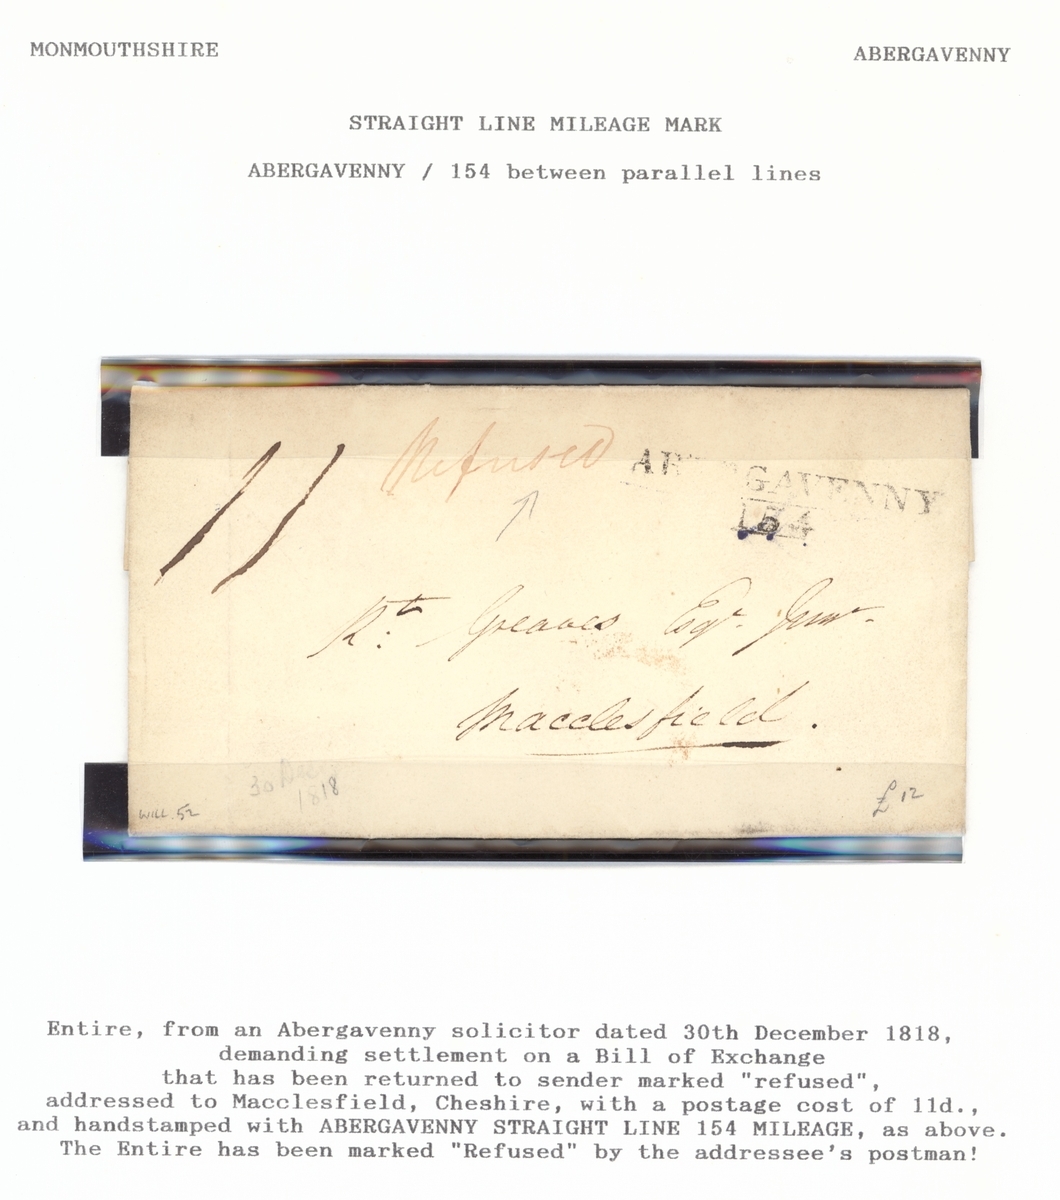 MONMOUTHSHIRE
ABERGAVENNY
STRAIGHT LINE MILEAGE MARK
ABERGAVENNY / 154 between parallel lines
11
Refused
ABERGAVENNY
154
Rt. Greaves Esqr. Junr.
Macclesfield.
30 Dec
1818
WILL. 52
£12
Entire, from an Abergavenny solicitor dated 30th December 1818,
demanding settlement on a Bill of Exchange
that has been returned to sender marked "refused",
addressed to Macclesfield, Cheshire, with a postage cost of 11d.,
and handstamped with ABERGAVENNY STRAIGHT LINE 154 MILEAGE, as above.
The Entire has been marked "Refused" by the addressee's postman!